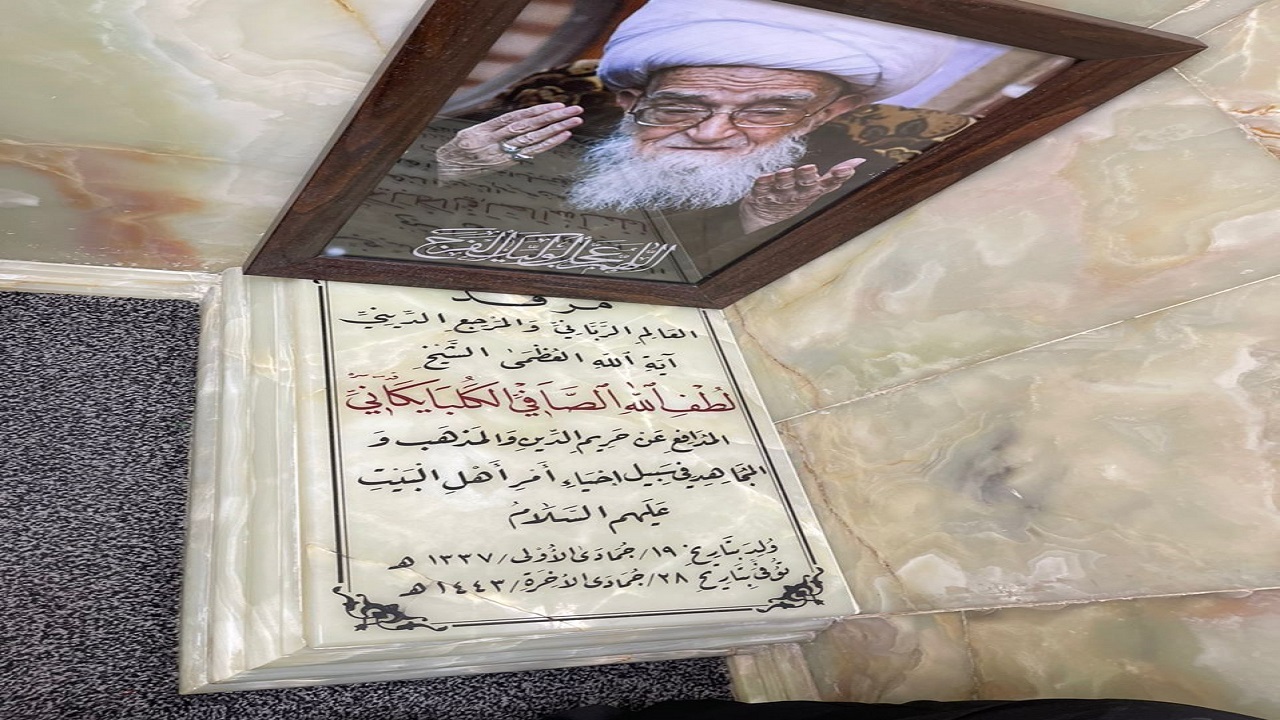 اللهم عجل لولیک الفرج
مرقد
العالم الرَّبّانيّ والمَرجِعِ الدّينيّ
آية الله العُظمى الشَّيخ
لُطفِ اللهِ الصَّافي الگلبايگانيّ
المدافع عَن حَريمِ الدّينِ وَالمَذهَب وَ
المجاهِدِ في سَبيل إحيَاءِ أمرِ أهْلِ البَيْتِ
عَلَيهم السَّلامُ
وُلِدَ بتَاريخ ١٩/ جُمادَى الأُولى/ ١٣٣٧ هـ
تُوُفّيَ بتَاريخ ٢٨/ جُمادَى الآخرة/ ١٤٤٣ هـ